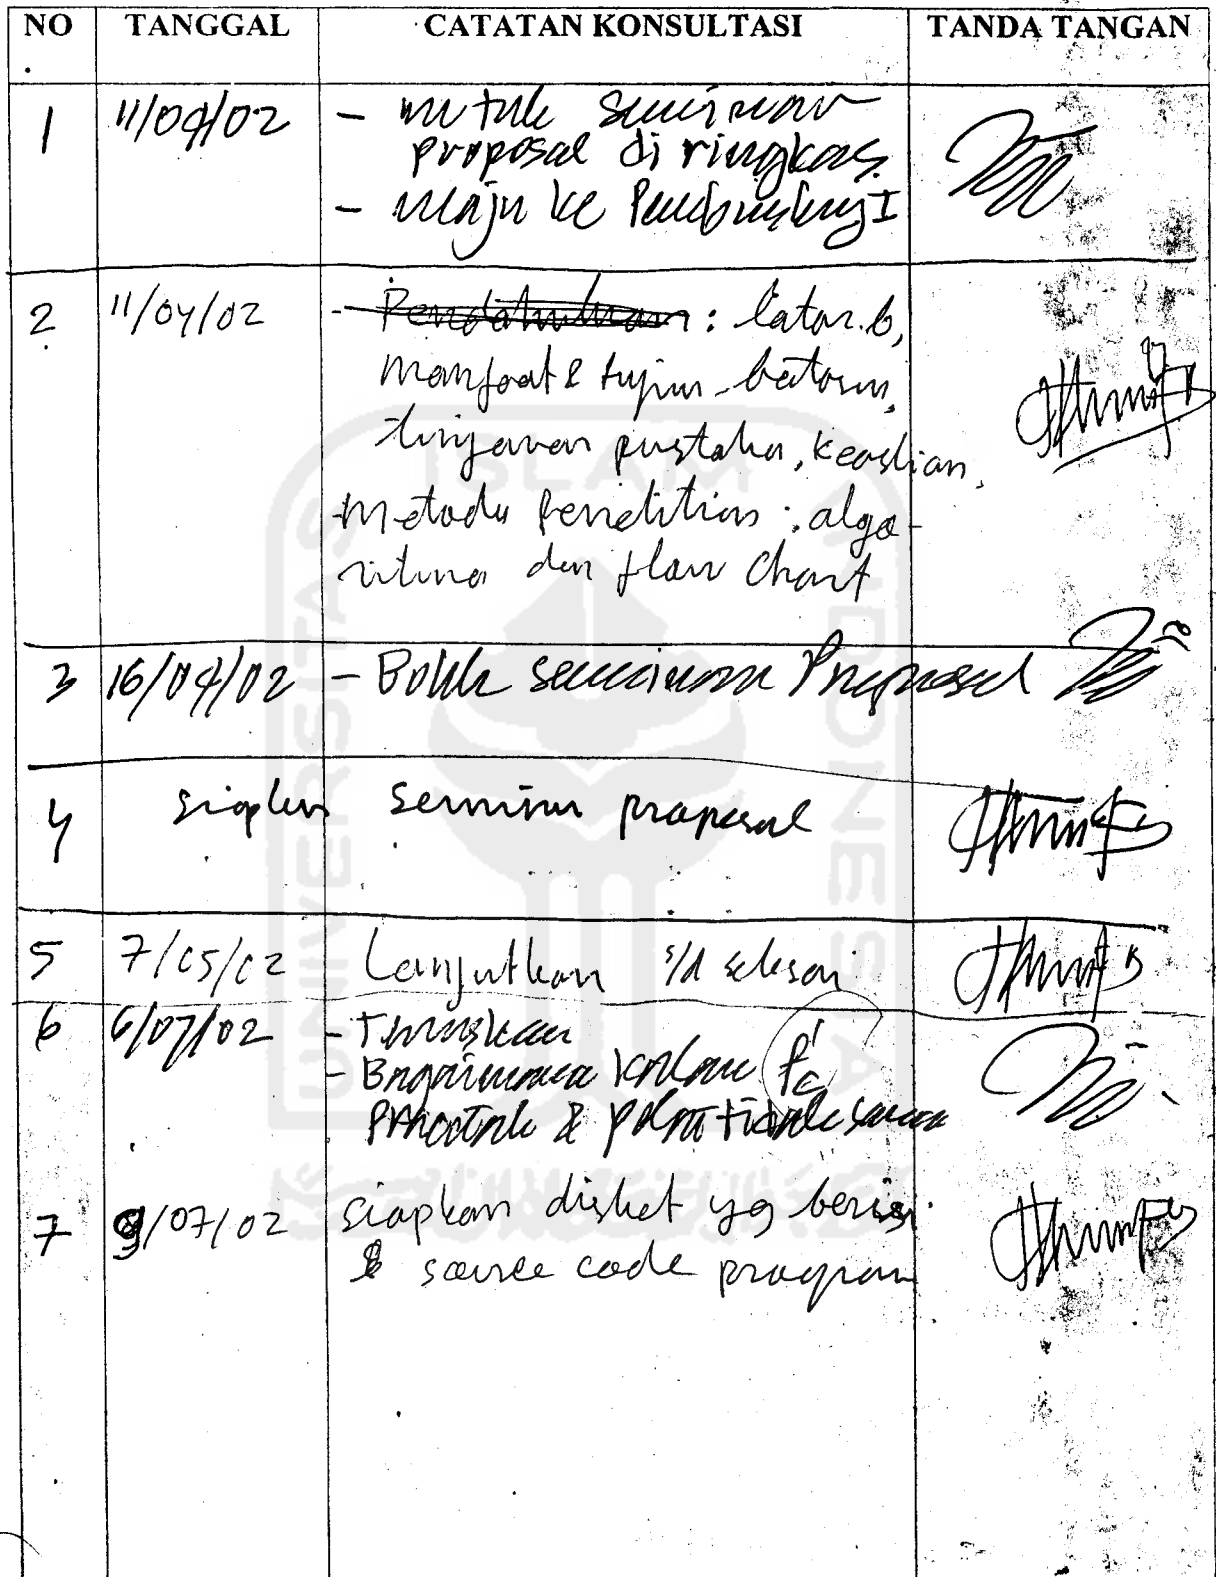 NO TANGGAL CATATAN KONSULTASI TANDA TANGAN
1 11/04/02 - untuk seminar
proposal diringkas.
- maju ke Pembimbing I
2 11/04/02 - Pendahuluan : latar b,
manfaat & tujuan - batasan,
tinjauan pustaka, keaslian,
- Metode Penelitian : algo-
ritma dan flow chart
3 16/04/02 - Boleh seminar Proposal
4 siapkan seminar proposal
5 7/05/02 Lanjutkan s/d selesai
6 6/07/02 - Teruskan
- Bagaimana kalau
& pola tidak sama
7 9/07/02 siapkan disket yg berisi
source code program
UNIVERSITAS ISLAM INDONESIA